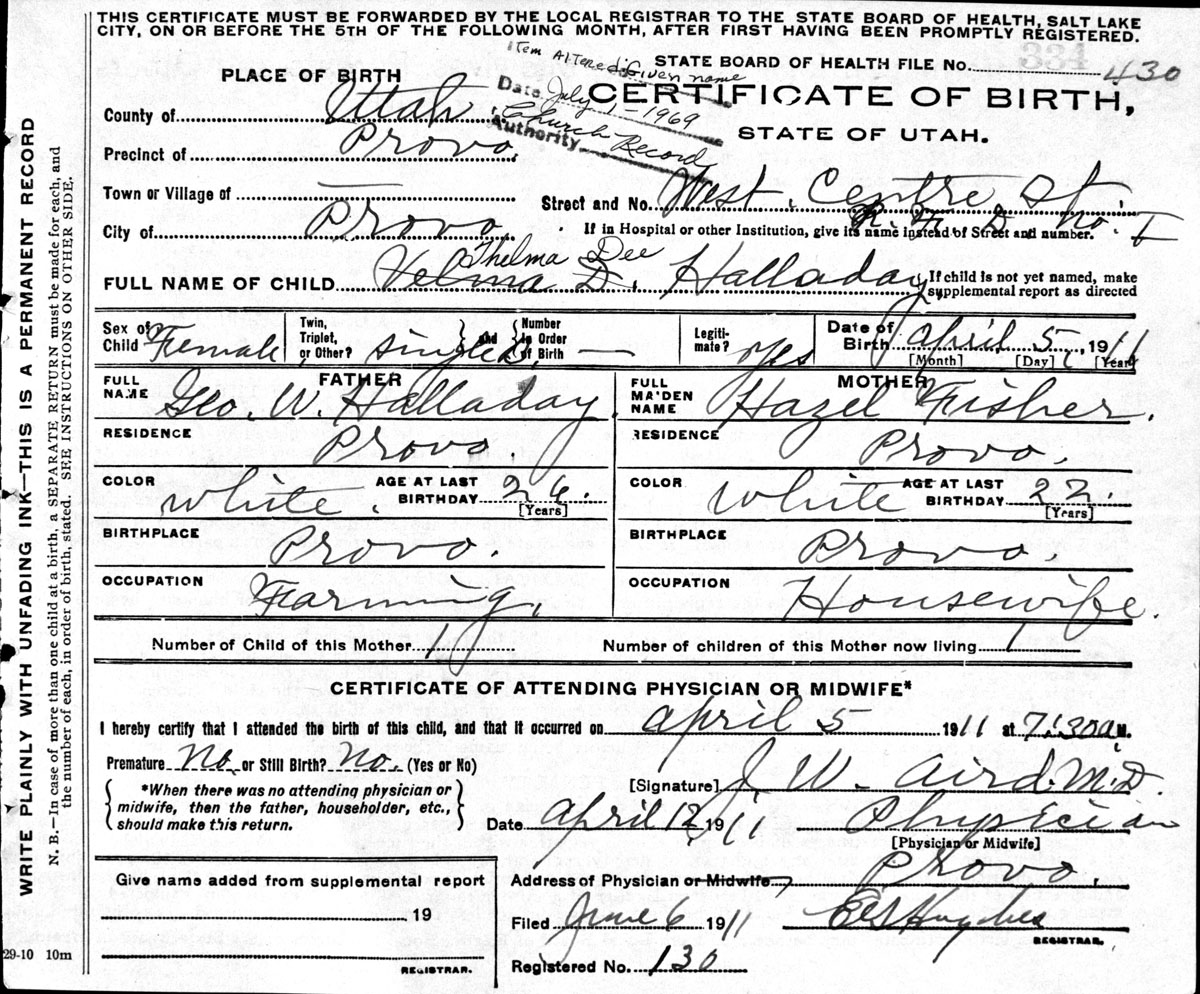 THIS CERTIFICATE MUST BE FORWARDED BY THE LOCAL REGISTRAR TO THE STATE BOARD OF HEALTH, SALT LAKE
CITY, ON OR BEFORE THE 5TH OF THE FOLLOWING MONTH, AFTER FIRST HAVING BEEN PROMPTLY REGISTERED.
WRITE PLAINLY WITH UNFADING INK—THIS IS A PERMANENT RECORD
N. B.—In case of more than one child at a birth, a SEPARATE RETURN must be made for each, and
the number of each, in order of birth, stated. SEE INSTRUCTIONS ON OTHER SIDE.
STATE BOARD OF HEALTH FILE No. 334 430
Item Altered Given name
Date July 1-1969
Church Record
Authority
PLACE OF BIRTH
CERTIFICATE OF BIRTH,
STATE OF UTAH.
County of Utah
Precinct of Provo.
Town or Village of —
Street and No. West Centre St
R. F. D. No. I
City of Provo.
If in Hospital or other Institution, give its name instead of Street and number.
Thelma Dee
FULL NAME OF CHILD Velma D. Halladay
If child is not yet named, make
supplemental report as directed
Sex of Child Female
Twin, Triplet, or Other? single and Number in Order of Birth —
Legitimate? Yes
Date of Birth April 5, 1911
[Month] [Day] [Year]
FATHER
FULL NAME Geo. W. Halladay.
RESIDENCE Provo.
COLOR White.
AGE AT LAST BIRTHDAY 26.
[Years]
BIRTHPLACE Provo.
OCCUPATION Farming.
MOTHER
FULL MAIDEN NAME Hazel Fisher.
RESIDENCE Provo.
COLOR White
AGE AT LAST BIRTHDAY 22.
[Years]
BIRTHPLACE Provo.
OCCUPATION Housewife.
Number of Child of this Mother 1
Number of children of this Mother now living 1
CERTIFICATE OF ATTENDING PHYSICIAN OR MIDWIFE*
I hereby certify that I attended the birth of this child, and that it occurred on April 5 1911 at 7:30 a M.
Premature No. or Still Birth? No. (Yes or No)
*When there was no attending physician or
midwife, then the father, householder, etc.,
should make this return.
[Signature] J. W. Aird. M.D.
Date April 12, 1911 Physician
[Physician or Midwife]
Address of Physician or Midwife Provo.
Give name added from supplemental report
19
REGISTRAR.
Filed June 6 1911 Hughes
REGISTRAR.
Registered No. 130
29-10 10m